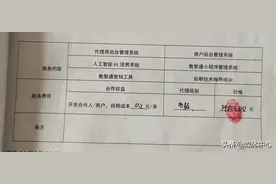 代理商后台管理系统 商户后台管理系统
服务内容 人工智能AI运营系统 数智通小程序管理系统
数智通营销工具 后期技术指导培训
合作权益 代理级别 价格
服务费用 开发合伙人/商户，视频成本 0.2 元/条 市级 元
备注
头条